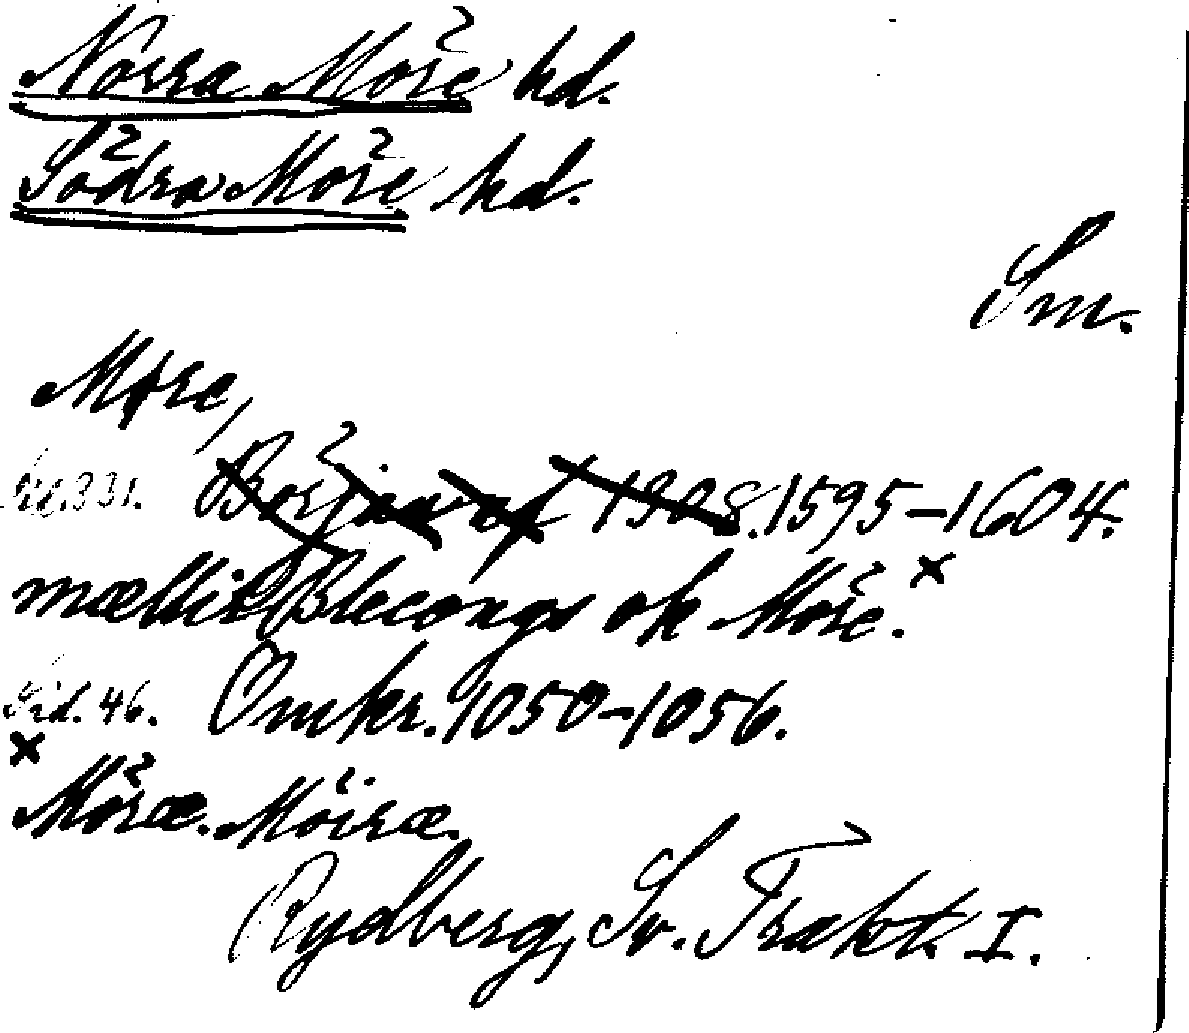 Norra Möre hd.
Södra Möre hd.
Sm.
Møre,
s. 331. Början af 1308. 1595–1604.
mællir Blecongs ok Möre. ×
Sid. 46. Omkr. 1050–1056.
×
Möræ. Möiræ.
Rydberg, Sv. Trakt. I.